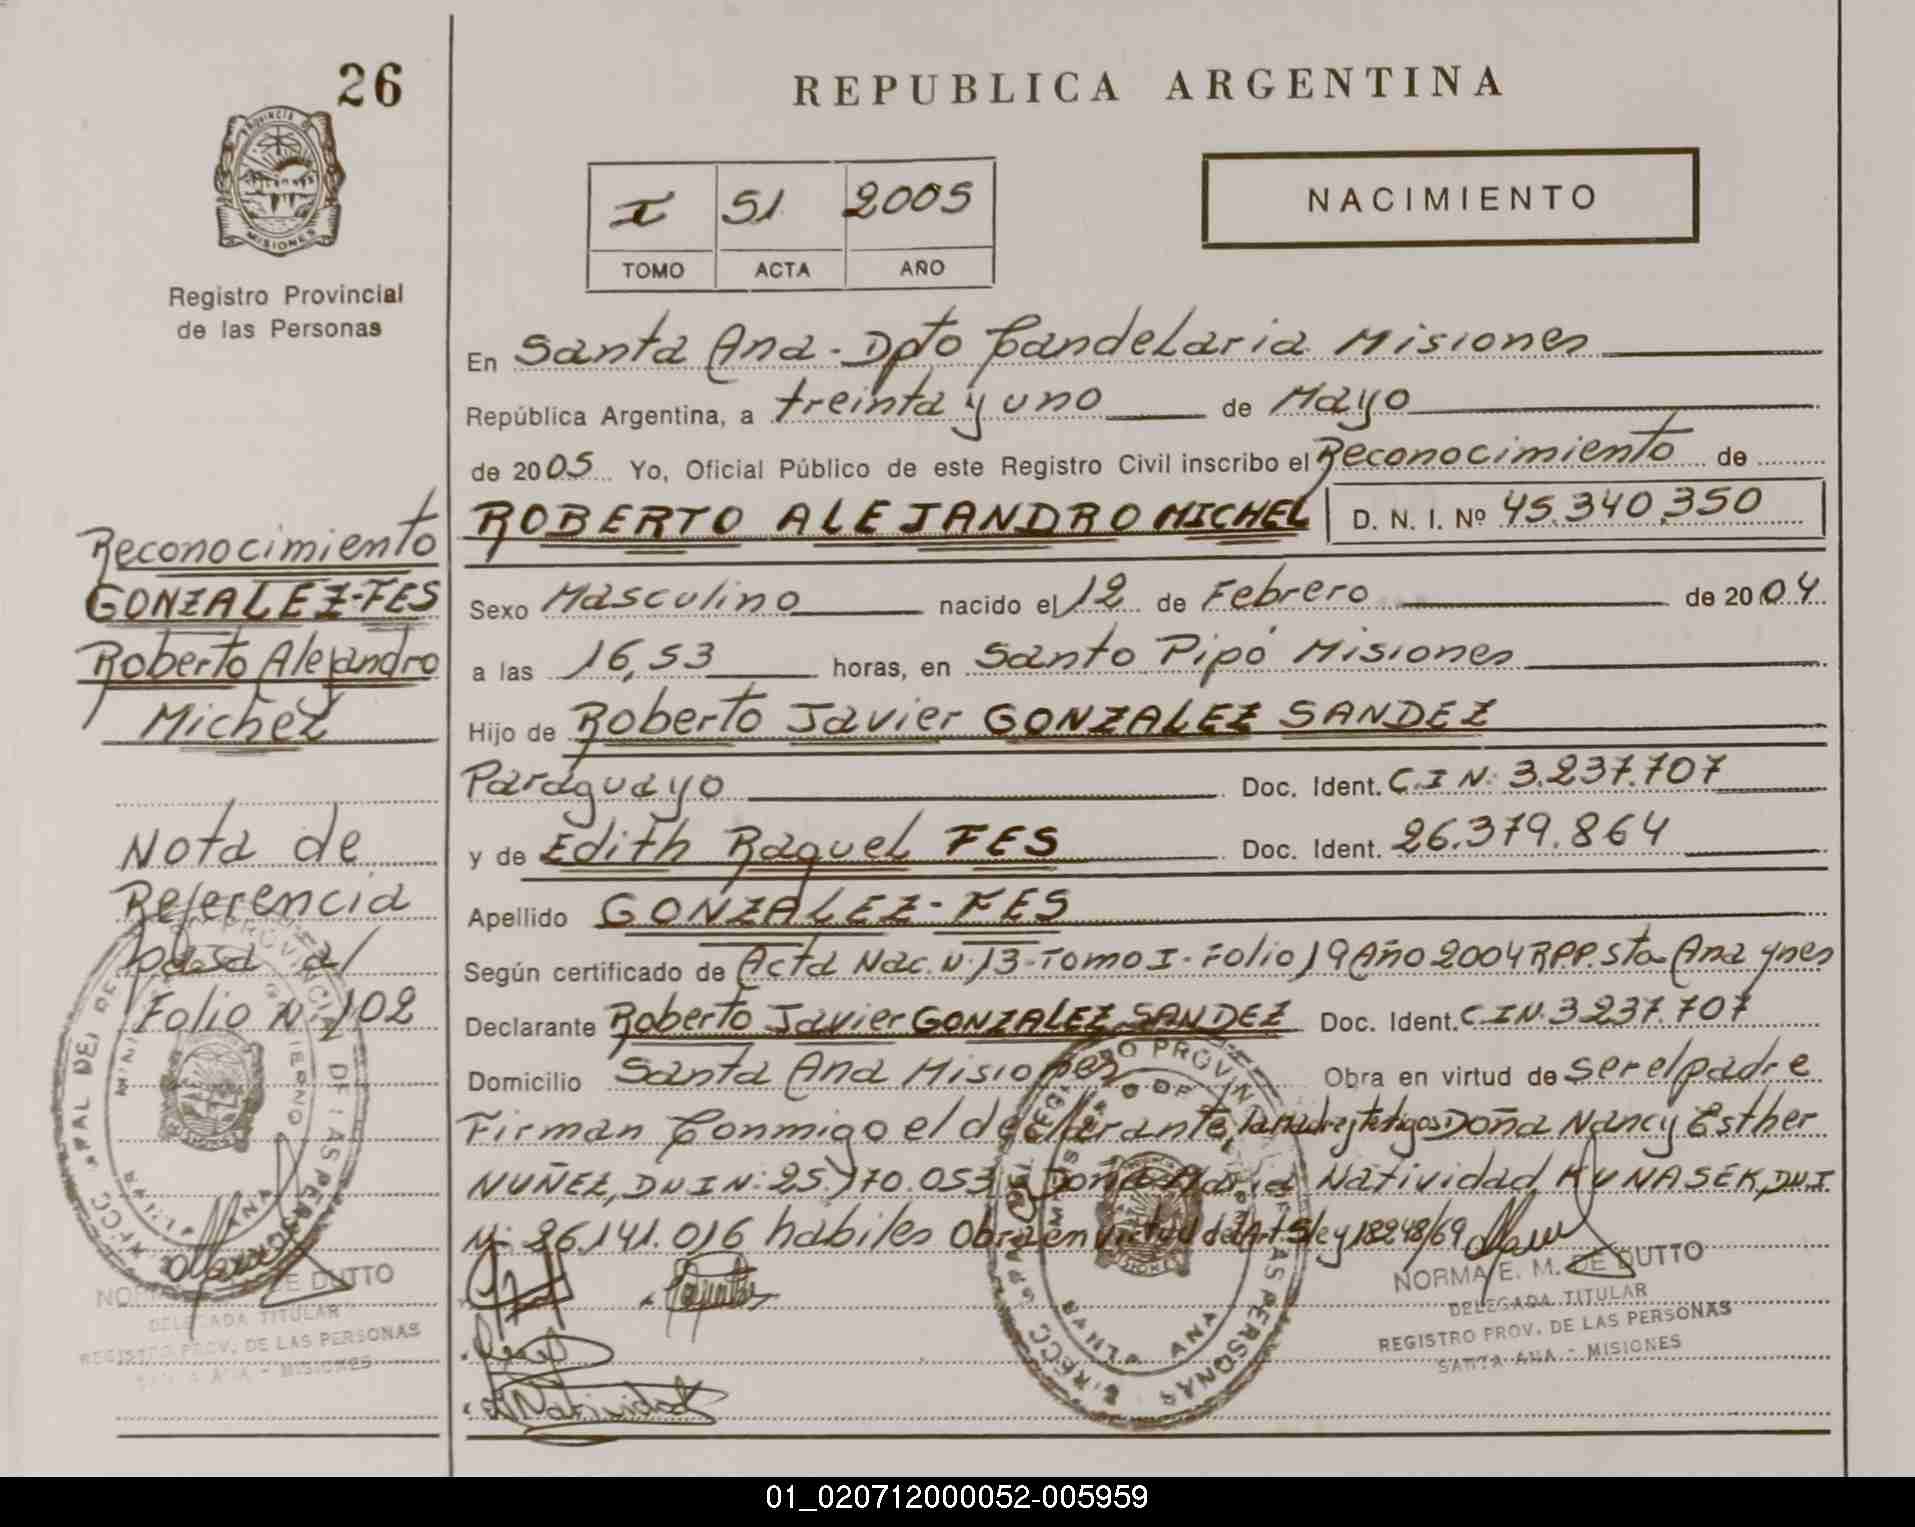 26
PROVINCIA DE
MISIONES
Registro Provincial
de las Personas
Reconocimiento
GONZALEZ-FES
Roberto Alejandro
Michel
Nota de
Referencia
pasa al
Folio N. 102
NORMA E. M. DE DUTTO
DELEGADA TITULAR
REGISTRO PROV. DE LAS PERSONAS
SANTA ANA - MISIONES
REPUBLICA ARGENTINA
I 51 2005
TOMO ACTA AÑO
NACIMIENTO
En Santa Ana - Dpto Candelaria Misiones
República Argentina, a treinta y uno de Mayo
de 2005 Yo, Oficial Público de este Registro Civil inscribo el Reconocimiento de
ROBERTO ALEJANDRO MICHEL D. N. I. Nº 45.340.350
Sexo Masculino nacido el 12 de Febrero de 2004
a las 16,53 horas, en Santo Pipó Misiones
Hijo de Roberto Javier GONZALEZ SANDEZ
Paraguayo Doc. Ident. C.I N: 3.237.707
y de Edith Raquel FES Doc. Ident. 26.379.864
Apellido GONZALEZ - FES
Según certificado de Acta Nac. N. 13 - Tomo I - Folio 19 Año 2004 R.P.P. Sta Ana
Declarante Roberto Javier GONZALEZ SANDEZ Doc. Ident. C.I N. 3.237.707
Domicilio Santa Ana Misiones Obra en virtud de ser el padre
Firman Conmigo el declarante, la madre y testigos Doña Nancy Esther
NUÑEZ, DNI N: 25.170.053 y Doña María Natividad KUNASEK, D.N.I.
N: 26.141.016 habiles Obra en virtud del Art 5 ley 18248/69
NORMA E. M. DE DUTTO
DELEGADA TITULAR
REGISTRO PROV. DE LAS PERSONAS
SANTA ANA - MISIONES
Natividad
01_020712000052-005959